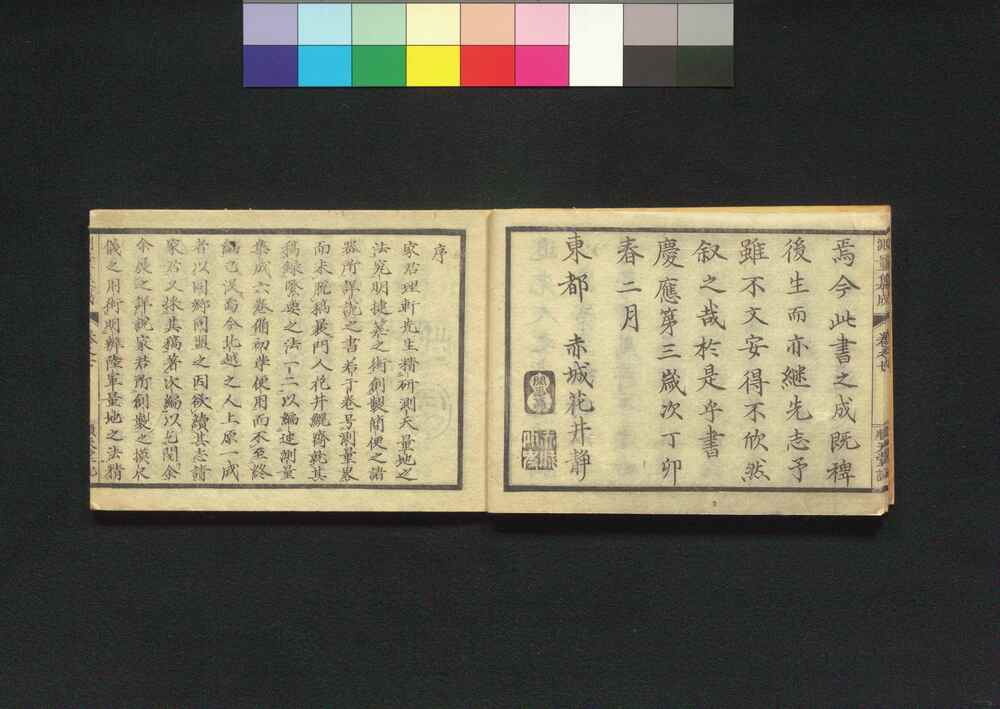 焉今此書之成既稗
後生而亦継先志予
雖不文安得不欣然
叙之哉於是乎書
慶應第三歳次丁卯
春二月
東都 赤城花井静
序
家君理軒先生精研測天量地之
法究明捷算之術創製簡便之諸
器所詳説之書若干卷号測量畧
而未脱稿曩門人花井鯤齋就其
稿録緊要之法一二以編述測量
集成六卷備初学便用而不至終
編已没而今北越之人上原一成
者以同郷同盟之因欲續其志請
家君又採其稿著次編以乞閲余
余展之詳説家君所創製之摸尺
儀之用術明辨陸軍量地之法精